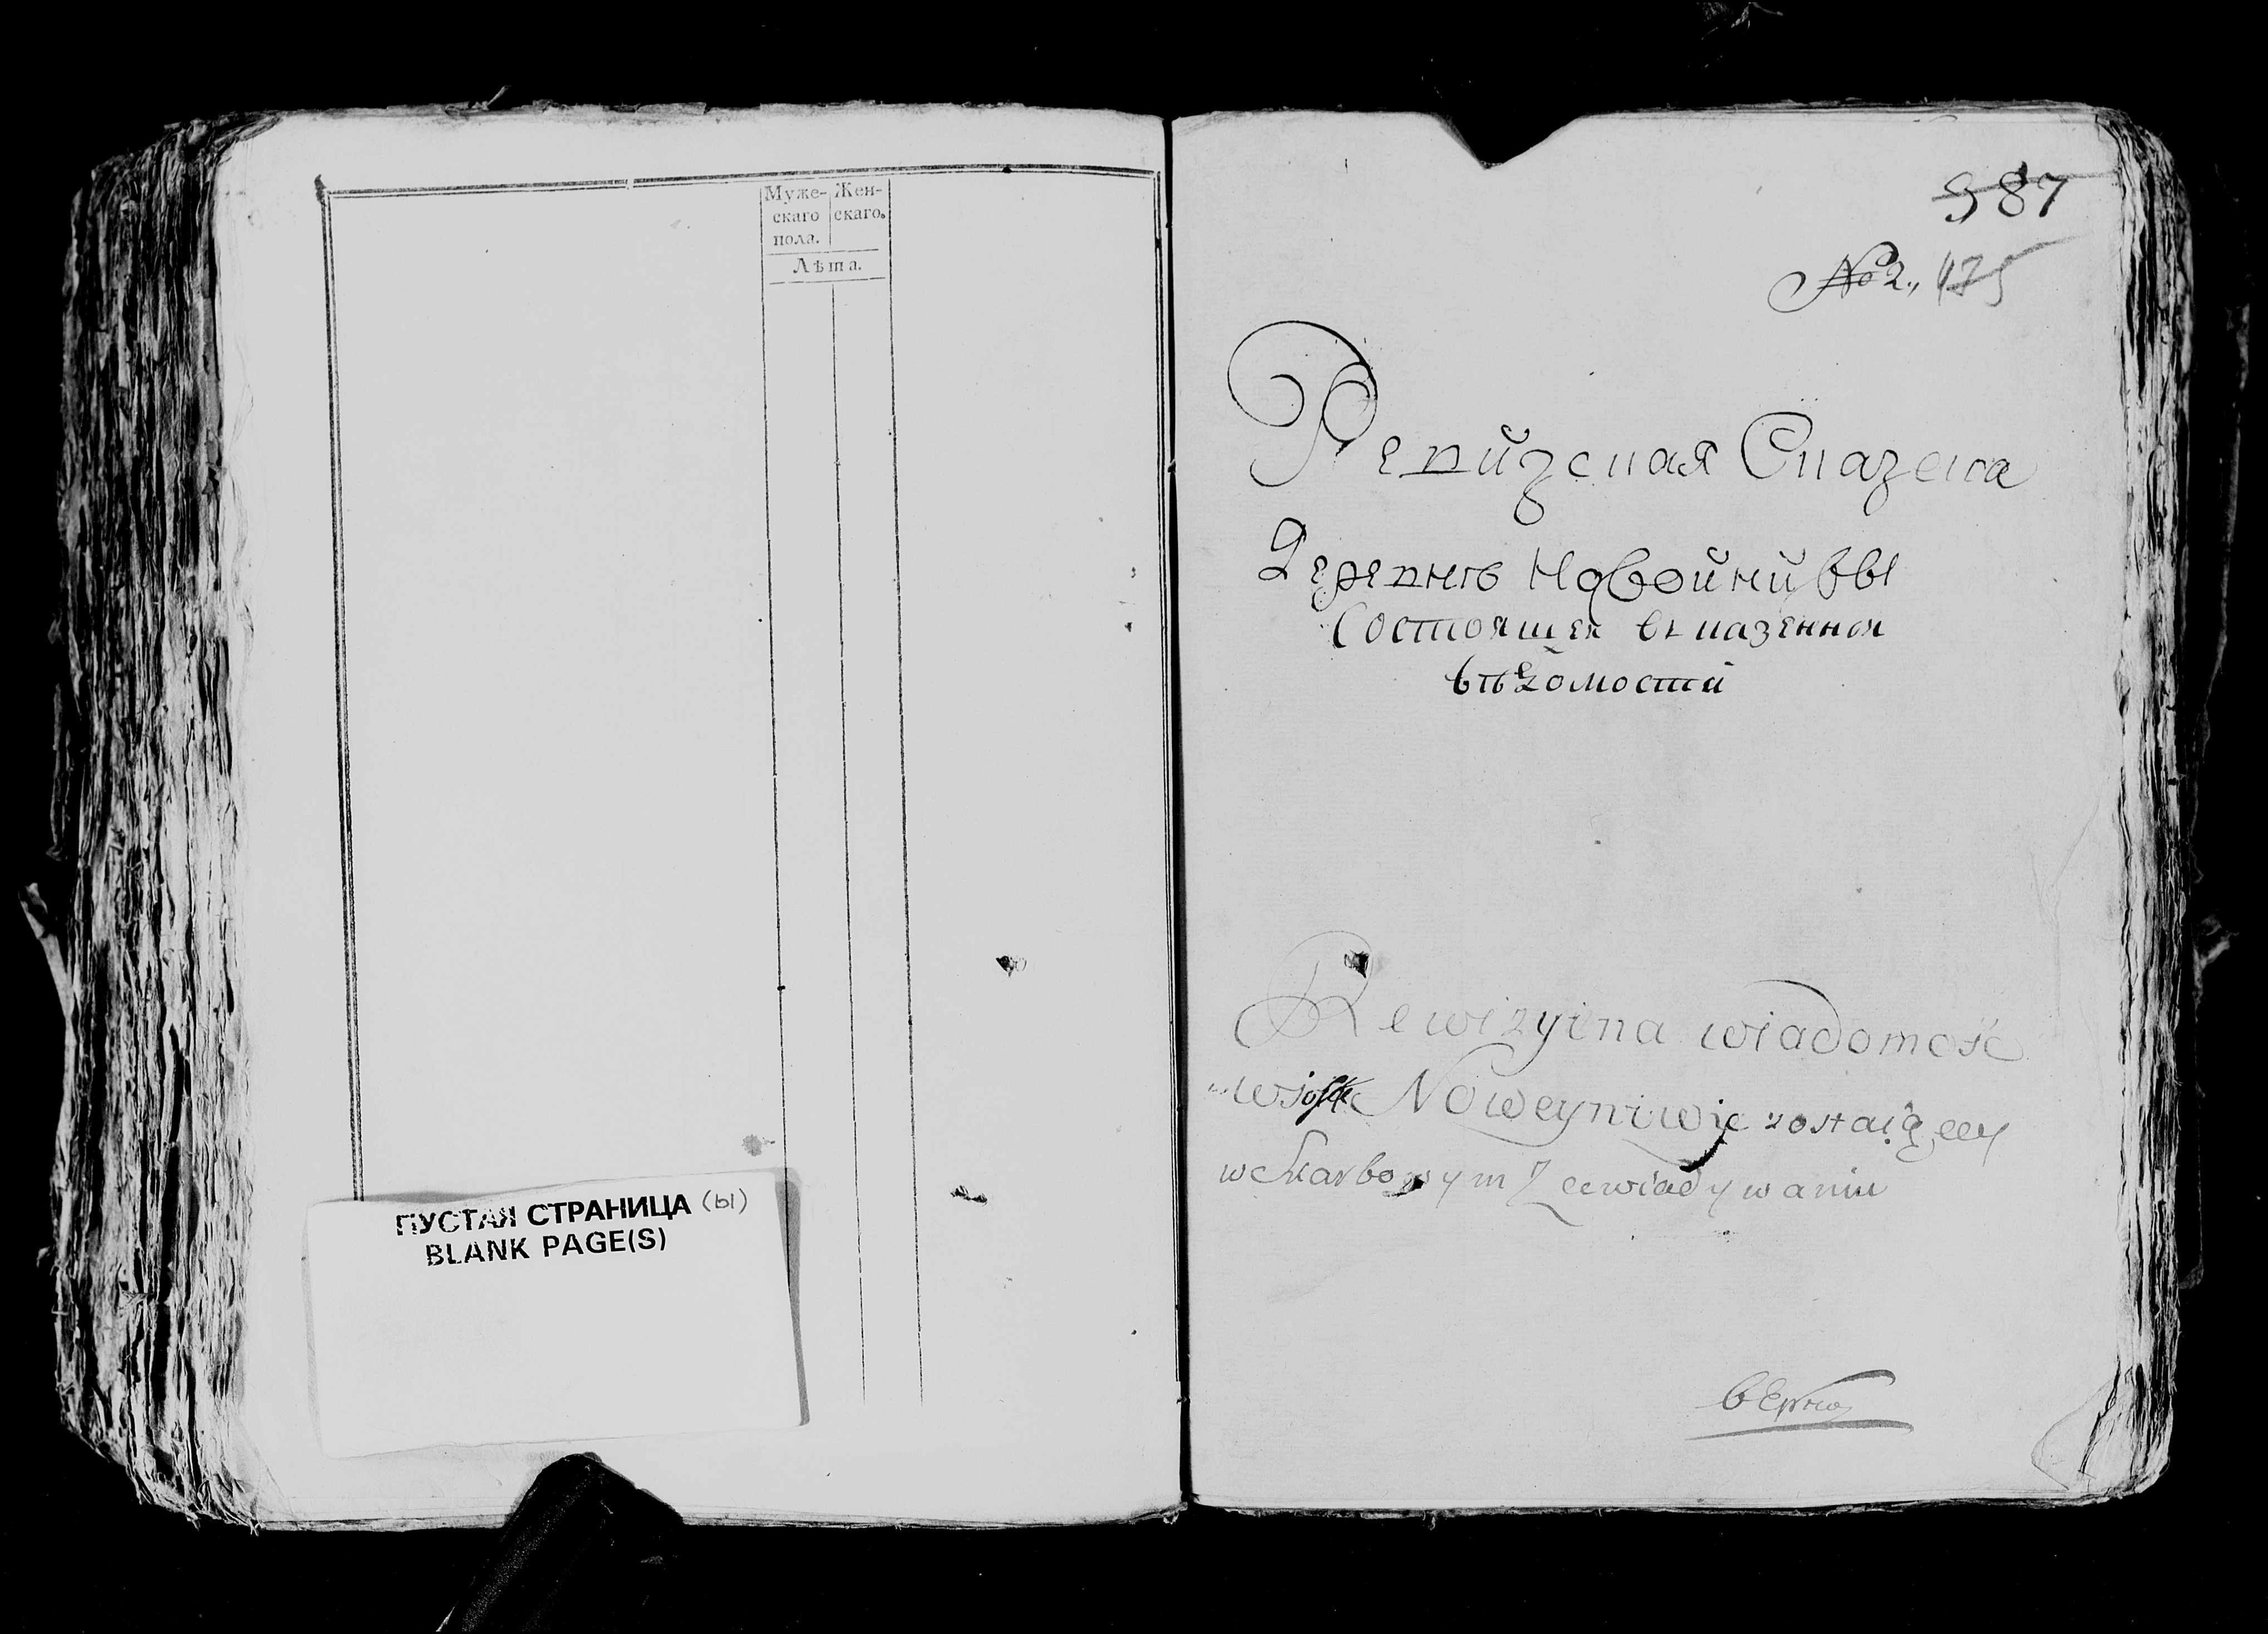 Муже- Жен-
скаго скаго.
пола.
Лѣта.
ПУСТАЯ СТРАНИЦА (ы)
BLANK PAGE(S)
987
№ 2., 475
Ревизская Сказка
Деревнѣ Новойнивы
Состоящея въ казенной
вѣдомости
Rewizyina wiadomość
wiosk Noweyniwie zostaiącey
w skarbowym Zawiadywaniu
вѣрно